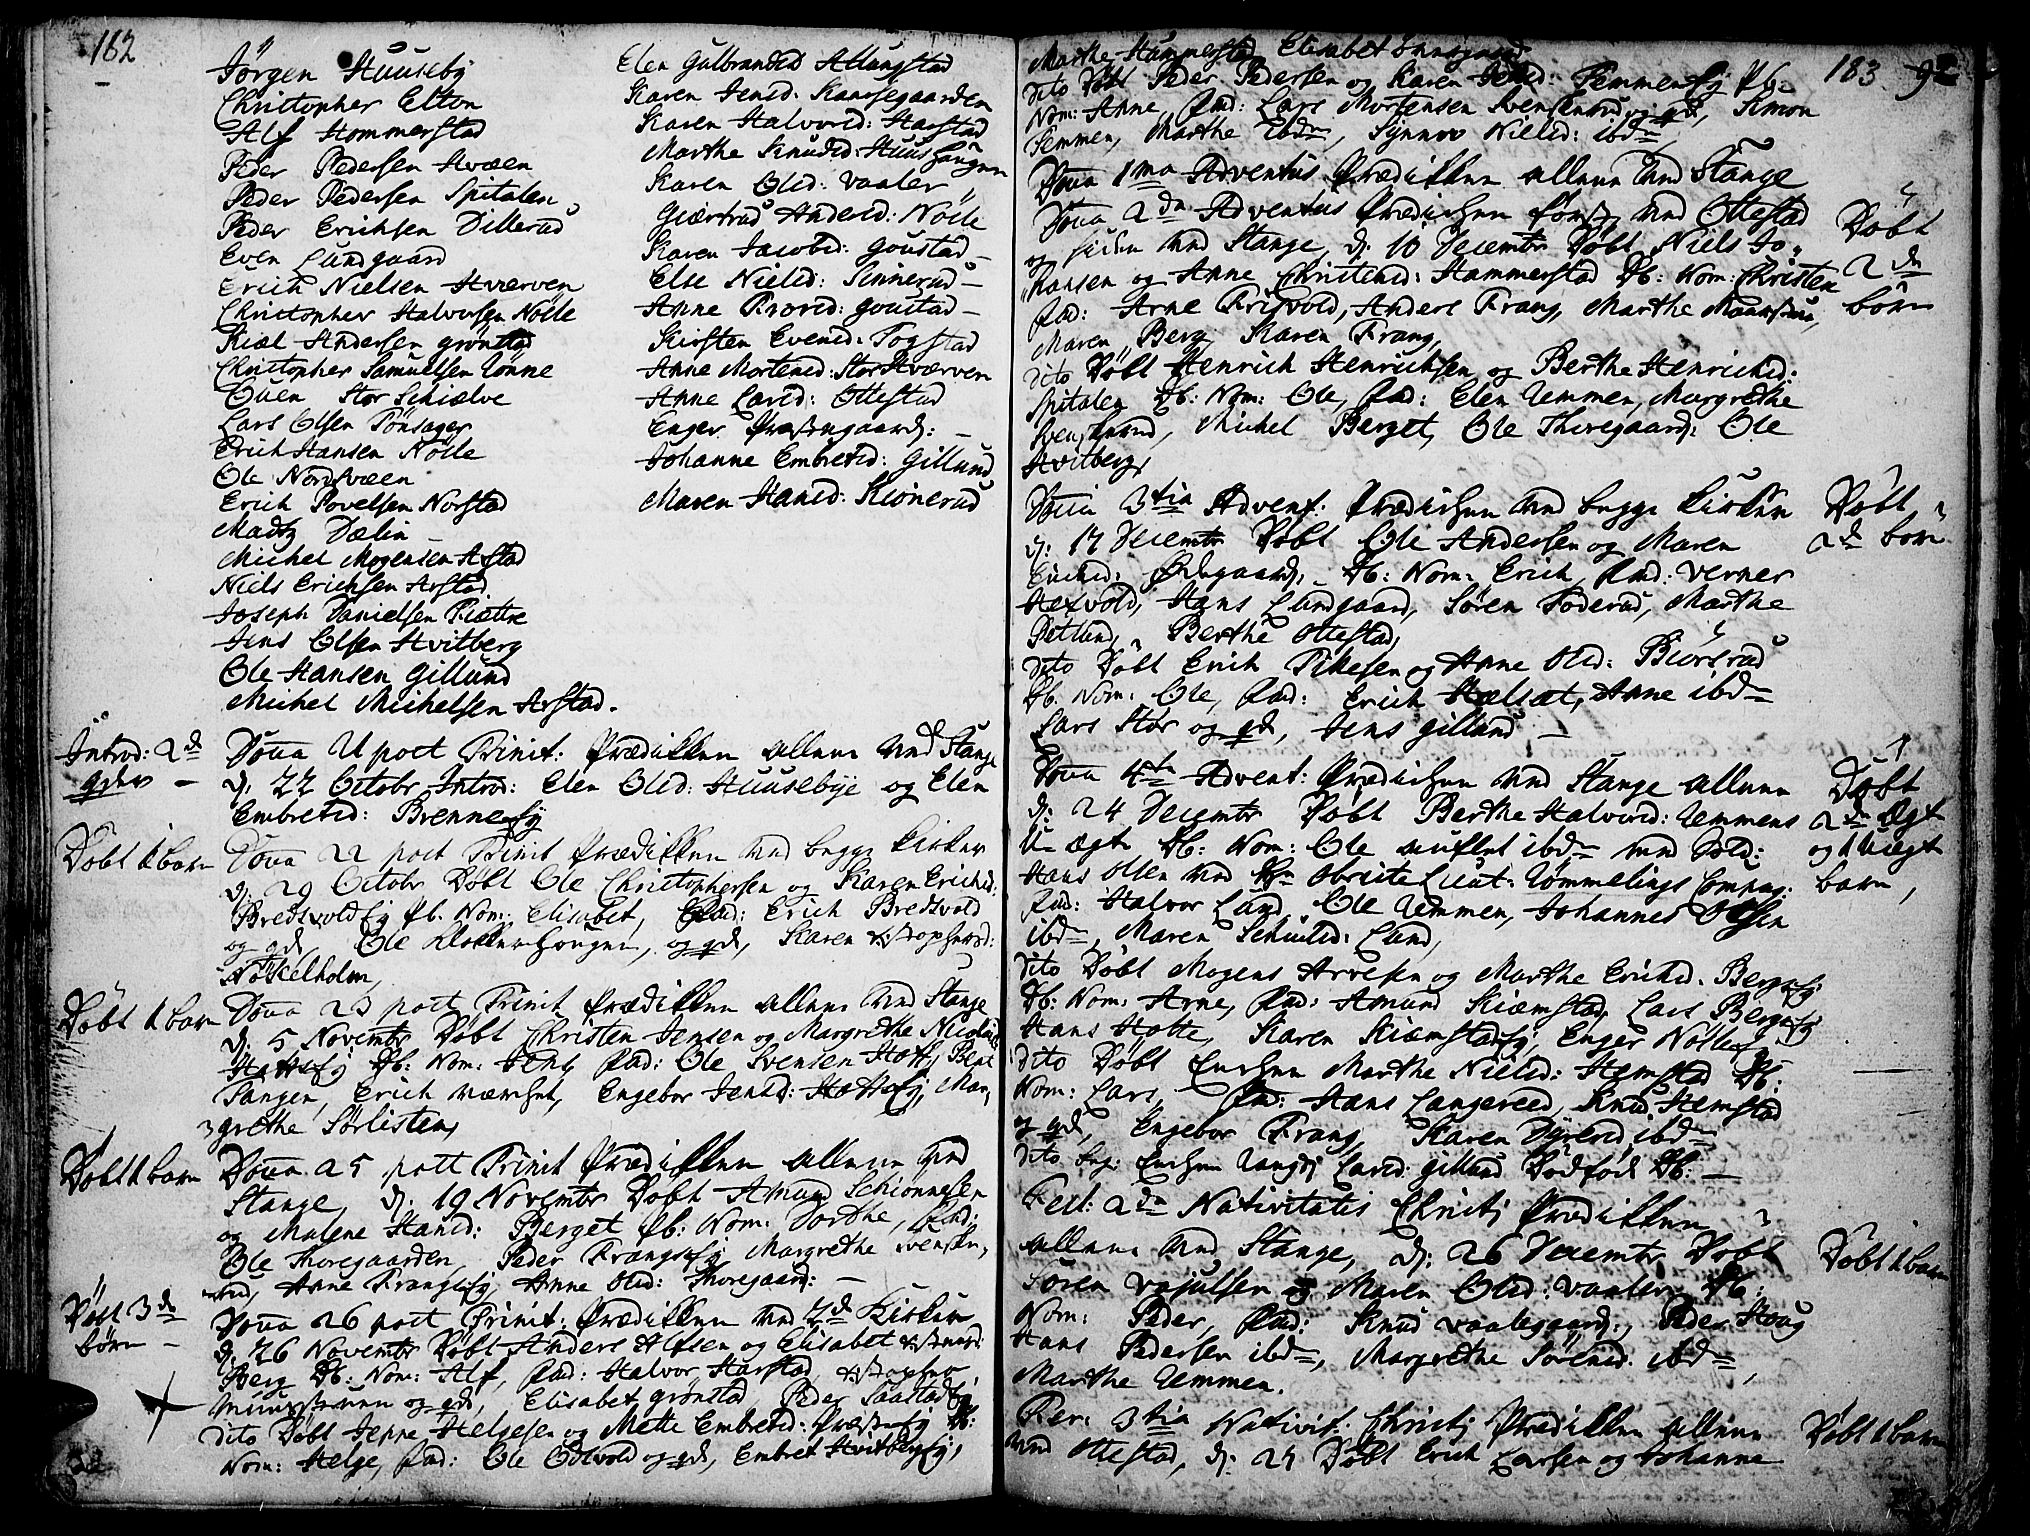 182
Jörgen Huuseby
Christopher Elton
Alf Hommerstad
Peder Pedersen Hvæen
Peder Pedersen Spitalen
Peder Erichsen Dillerud
Even Lundgaard
Erich Nielsen Hværven
Christopher Halvorsen Nölle
Kiæl Andersen grönstad
Christopher Samuelsen Lönne
Ouen Stor Schiælve
Lars Olsen Tönsager
Erich Hansen Nölle
Ole Nordhvæen
Erich Povelsen Norstad
Madtz Dælin
Michel Mogensen Arstad
Niels Erichsen Arstad
Joseph Danielsen Riætte
Jens Olsen Hvitberg
Ole Hansen Gillund
Michel Michelsen Arstad.
Elen Gulbrandsd Allungstad
Karen Jensd: Kaarsegaarden
Karen Halvorsd: Harstad
Marthe Knudsd: Huus Haugen
Karen Olsd: Vaaler
Giærtrud Andersd: Nölle
Karen Jacobsd: goustad
Else Nielsd: Sinnerud
Anne Provsd: goustad
Kirsten Evensd: Togstad
Anne Mortensd: Stor Hværven
Anne Larsd: Ottestad
Enger Præstegaard:
Johanne Embretsd: Gillund
Maren Hansd: Kiönerud
Introd: 2de
qder
Dom 21 post Trinit: Prædikken allene ved Stange
d: 22 Octobr Introd: Elen Olsd: Huusebye og Elen
Embretsd: Brennerey
Döbt 1 barn
Dom 22 post Trinit Prædikken ved begge kirker
d: 29 Octobr Döbt Ole Christophersen og Karen Erichsd:
Bredsvoldey Pb: Nom: Elisabet, Fad: Erich Bredsvold
og qd, Ole Klokkerhougen, og qd, Karen
Nökkelholm,
Döbt 1 barn
Dom 23 post Trinit Prædikken allene ved Stange
d: 5 Novembr Döbt Christen Jensen og Margrethe Nicolais
Db: Nom: Jens Fad: Ole Svensen Beat
Tangen, Erich værhset, Engebor Jensd: Mar-
grethe Sörlisten,
Döbt 1 barn
Dom 25 post Trinit Prædikken allene ved
Stange, d: 19 Novembr Döbt Amund Schiönnesen
og Malene Hansd: Berget Pb: Nom: Dorthe, Fad:
Ole Thoregaarden, Peder Frangsey Margrethe Svensbe-
rud, Anne Frangsey, Anne Olsd: Thoregaard:
Döbt 3de
börn
Dom 26 post Trinit: Prædikken ved 2de Kirker
d: 26 Novembr Döbt Anders Alfsen og Elisabet
Berg Db: Nom: Alf, Fad: Halvor Harstad,
og qd, Elisabet grönstad, Peder Saastadey
dito Döbt Jeppe Helgesen og Mette Embretsd: Præstey Db:
Nom: Helge, Fad: Ole Odsvold og qd, Embret Hvitbergey,
Marthe Hammerstad Elisabet
183 92
dito Döbt Peder Pedersen og Karen Jensd: Femmeney Pb:
Nom: Anne, Fad: Lars Mortensen Svenskerud og qd, Simon
Femmen, Marthe ibdm, Synnov Nielsd: ibdm
Dom 1ma Adventus Prædikken allene ved Stange
Dom 2da Adventus Prædichen först ved Ottestad
og siden ved Stange, d: 10 Decembr Döbt Niels Jo-
hansen og Anne Christensd: Hammerstad Db: Nom: Christen
Fad: Arne Frisvold, Anders Frang, Marthe
Maren Berg Karen Frang,
Döbt
2de
börn
dito Döbt Henrich Henrichsen og Berthe Henrichsd:
Spitalen Db: Nom: Ole, Fad: Elen Uemmen, Margrethe
Svenskerud, Michel Berget, Ole Thoregaard: Ole
Hvitberg,
Dom 3tia Advent. Prædichen ved begge kirker
d: 17 Decembr Döbt Ole Andersen og Maren
Erichsd: Ödegaard: Db: Nom: Erich Fad: Verner
Hexvold, Hans Lundgaard, Sören Soderud, Marthe
Detlund, Berthe Ottestad,
Döbt
2de born
dito Döbt Erich Tikesen og Anne Olsd: Biörsrud
Db: Nom: Ole, Fad: Erich Hælsæt, Anne ibdm
Lars Stör og qd, Jens Gillund
Dom 4ta Advent: Prædichen ved Stange allene
d: 24 Decembr Döbt Berthe Halvorsd: Uemmens
U ægte Db: Nom: Ole ibdm med Sold:
Hans Olsen ved Obriste Lieut: Römmelings Compag:
Fad: Halvor Lund, Ole Uemmen, Johannes Olsen
ibdm, Maren Schiulsd: Lund,
Döbt
2de Ægt
og 1 Uægt
barn,
dito Döbt Mogens Arvesen og Marthe Erichsd: Bergsey
Db: Nom: Arne, Fad: Amund Kiæmstad, Lars Bergsey
Hans Holte, Karen Kiæmstadey, Enger Nölley
dito Döbt Enchen Marthe Nielsd: Hemstad Db:
Nom: Lars, Fad: Hans Langereed, Knud Hemstad
og qd, Engebor Frang, Karen Dyresd ibdm
dito Enchen Larsd Gillund Dödföd Db:
Fest: 2da Nativitatis Christj Prædikken
allene ved Stange, d: 26 Decembr Döbt
Sören Vajulsen og Maren Olsd: Vaaler Db:
Nom: Peder, Fad: Knud Vaalegaard:, Peder Houg
Hans Pedersen ibdm, Margrethe Sörensd: ibdm,
Marthe Uemmen.
Döbt 1 barn
Fer: 3tia Nativit: Christj Prædikken allene
ved Ottestad, d: 27 Döbt Erich Larsen og Johanne
Döbt 1 barn